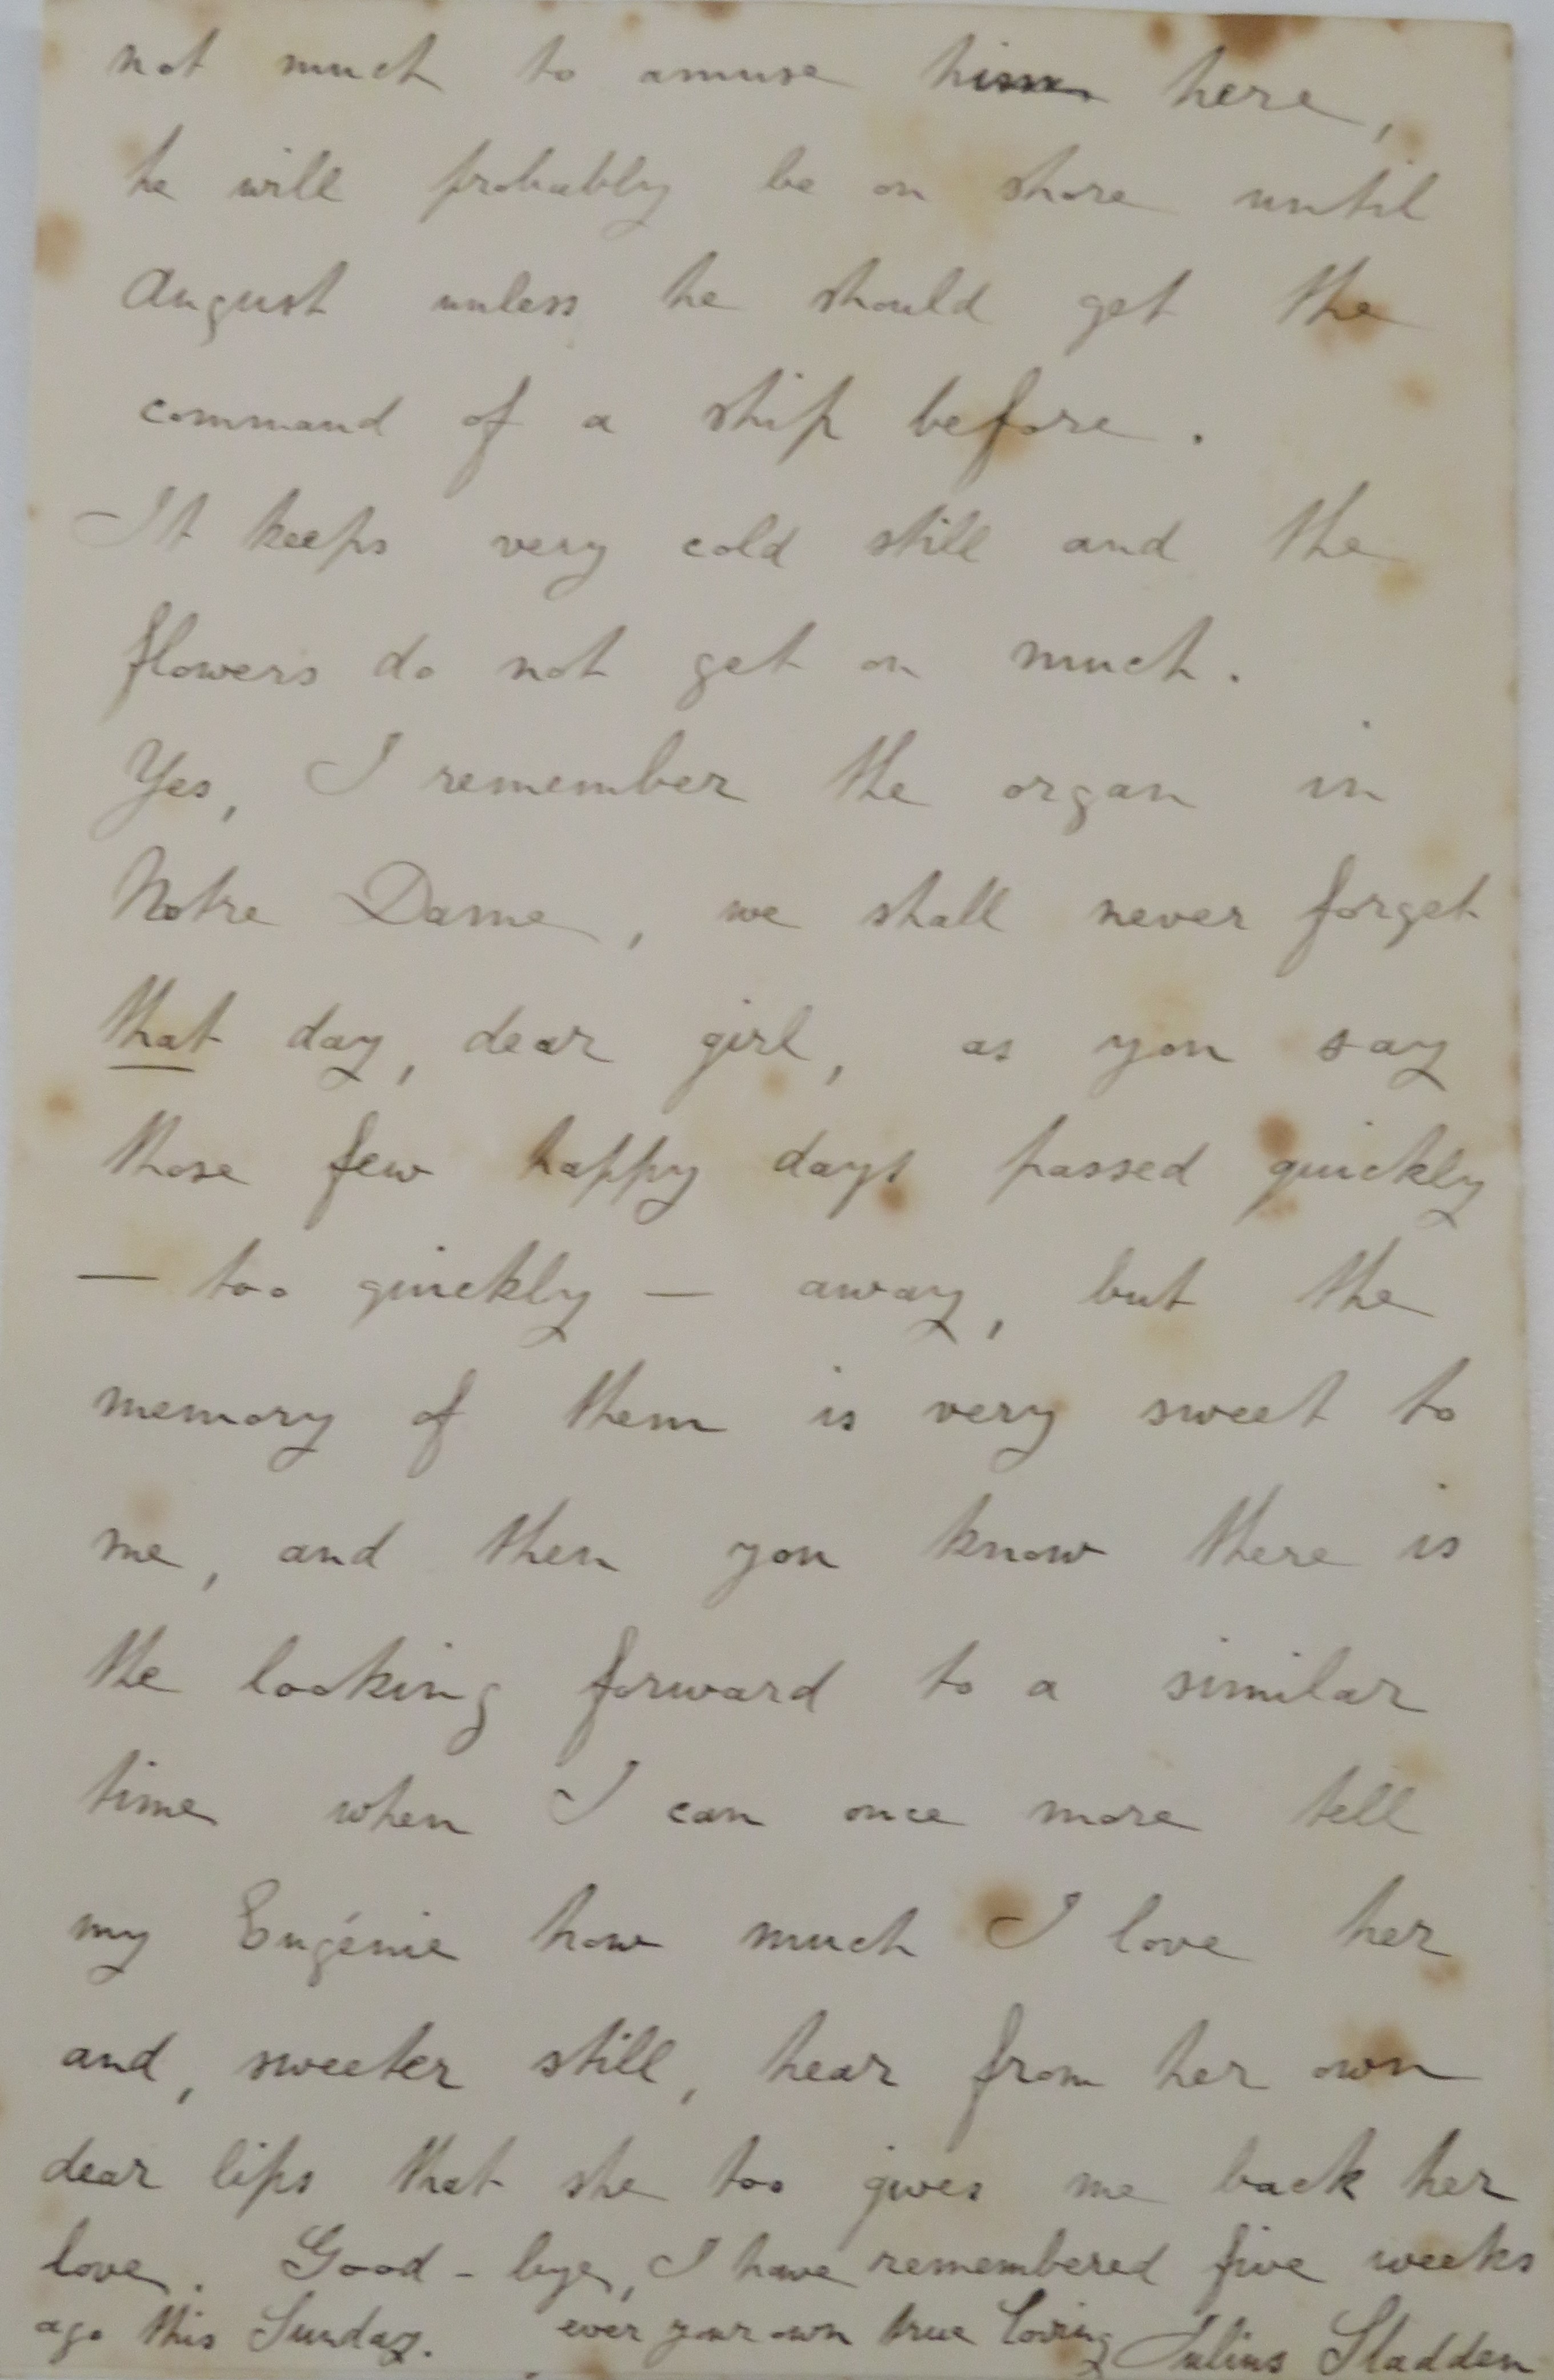 not much to amuse him here,
he will probably be on shore until
August unless he should get the
command of a ship before.
It keeps very cold still and the
flowers do not get on much.
Yes, I remember the organ in
Notre Dame, we shall never forget
that day, dear girl, as you say
those few happy days passed quickly
— too quickly — away, but the
memory of them is very sweet to
me, and then you know there is
the looking forward to a similar
time when I can once more tell
my Eugénie how much I love her
and, sweeter still, hear from her own
dear lips that she too gives me back her
love. Good-bye, I have remembered five weeks
ago this Sunday. ever your own true loving Julius Sladden